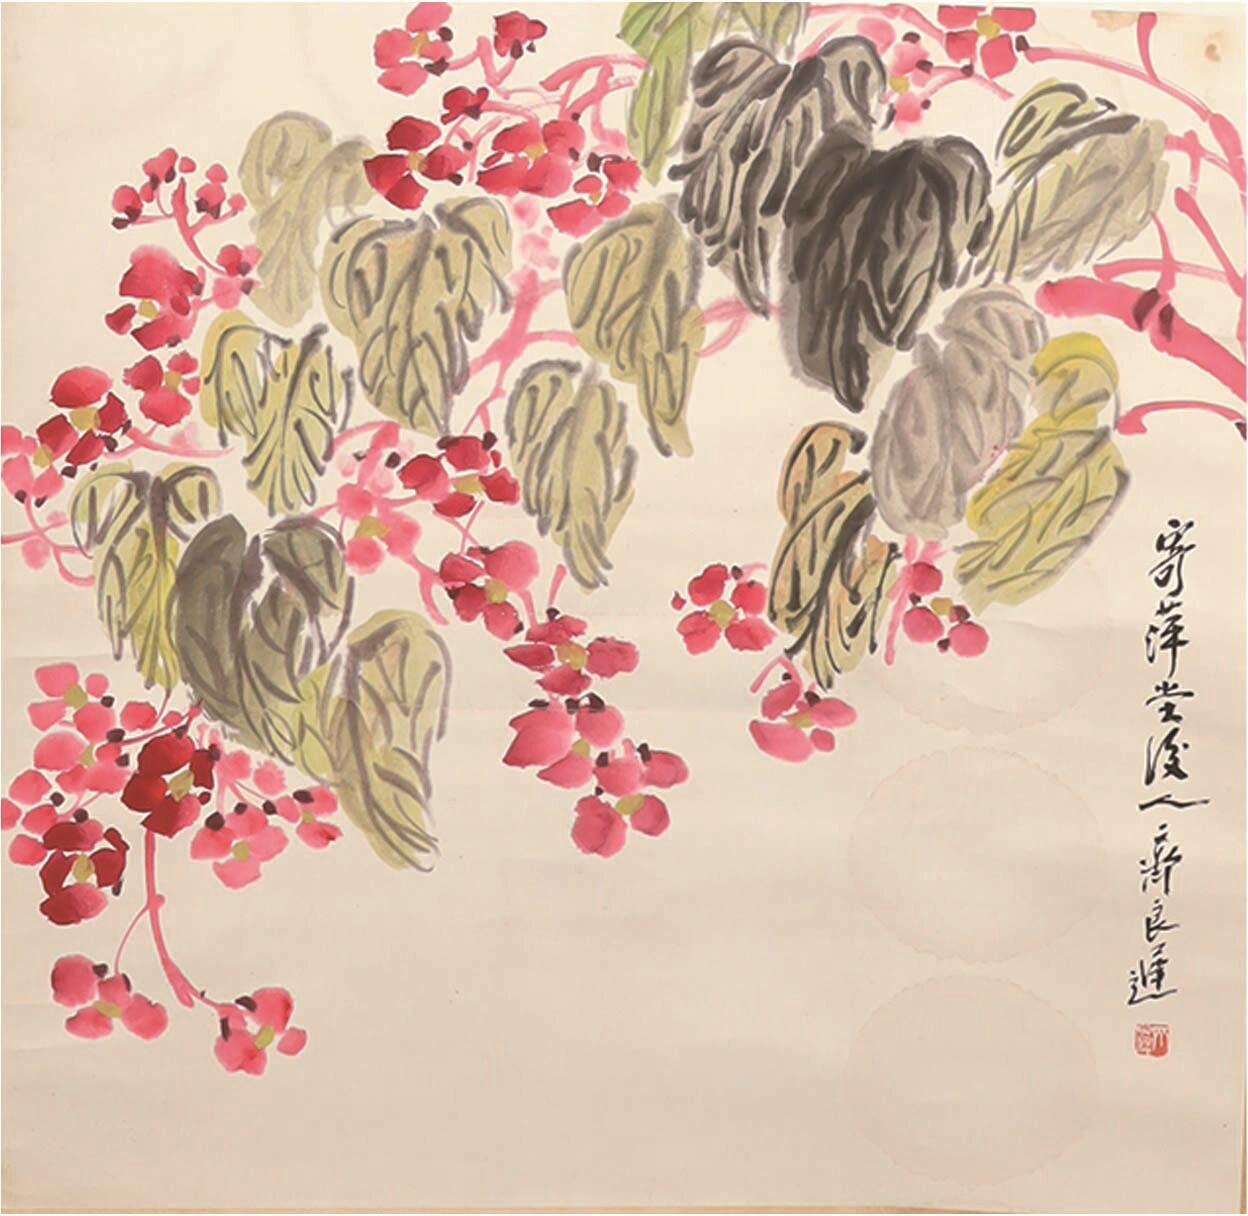 寄萍堂後人齊良遲